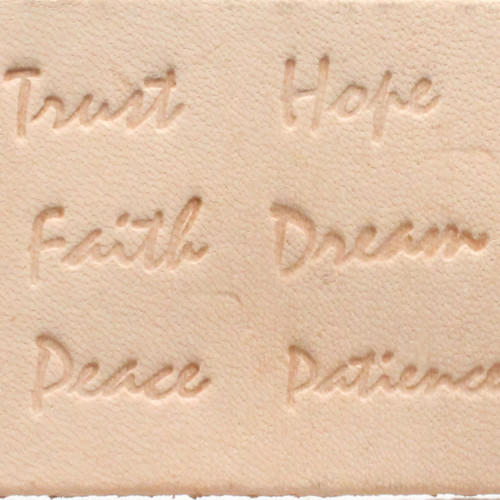 Trust Hope
Faith Dream
Peace Patience